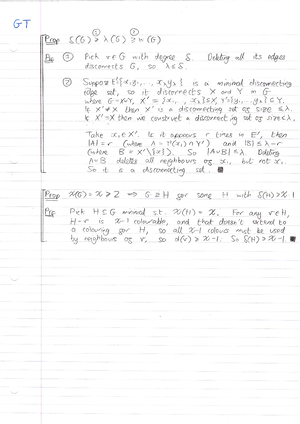 GT
Prop δ(G) ≥ λ(G) ≥ κ(G)
① ②
Pf ① Pick v∈G with degree δ. Deleting all its edges
disconnects G, so λ≤δ.
② Suppose E'{x₁y₁, ..., xλyλ} is a minimal disconnecting
edge set, so it disconnects X and Y in G
where G = X∪Y, X' = {x₁, ..., xλ}⊆X, Y'={y₁, ..., yλ}⊆Y.
If X'≠X then X' is a disconnecting set of size ≤λ.
If X'=X then we construct a disconnecting set of size≤λ.
Take x₁∈X'. Is it appears r times in E', then
|A|=r (where A = Γ(x₁)∩Y') and |B|≤λ-r
(where B = X'\{x₁}). So |A∪B|≤λ. Deleting
A∪B deletes all neighbours of x₁, but not x₁.
So it is a disconnecting set. ■
Prop χ(G)=χ≥2 ⇒ G≥H for some H with δ(H)≥χ-1
Pf Pick H≤G minimal st. χ(H)=χ. For any v∈H,
H-v is χ-1 colourable, and that doesn't extend to
a colouring for H, so all χ-1 colours must be used
by neighbours of v, so d(v)≥χ-1. So δ(H)≥χ-1. ■